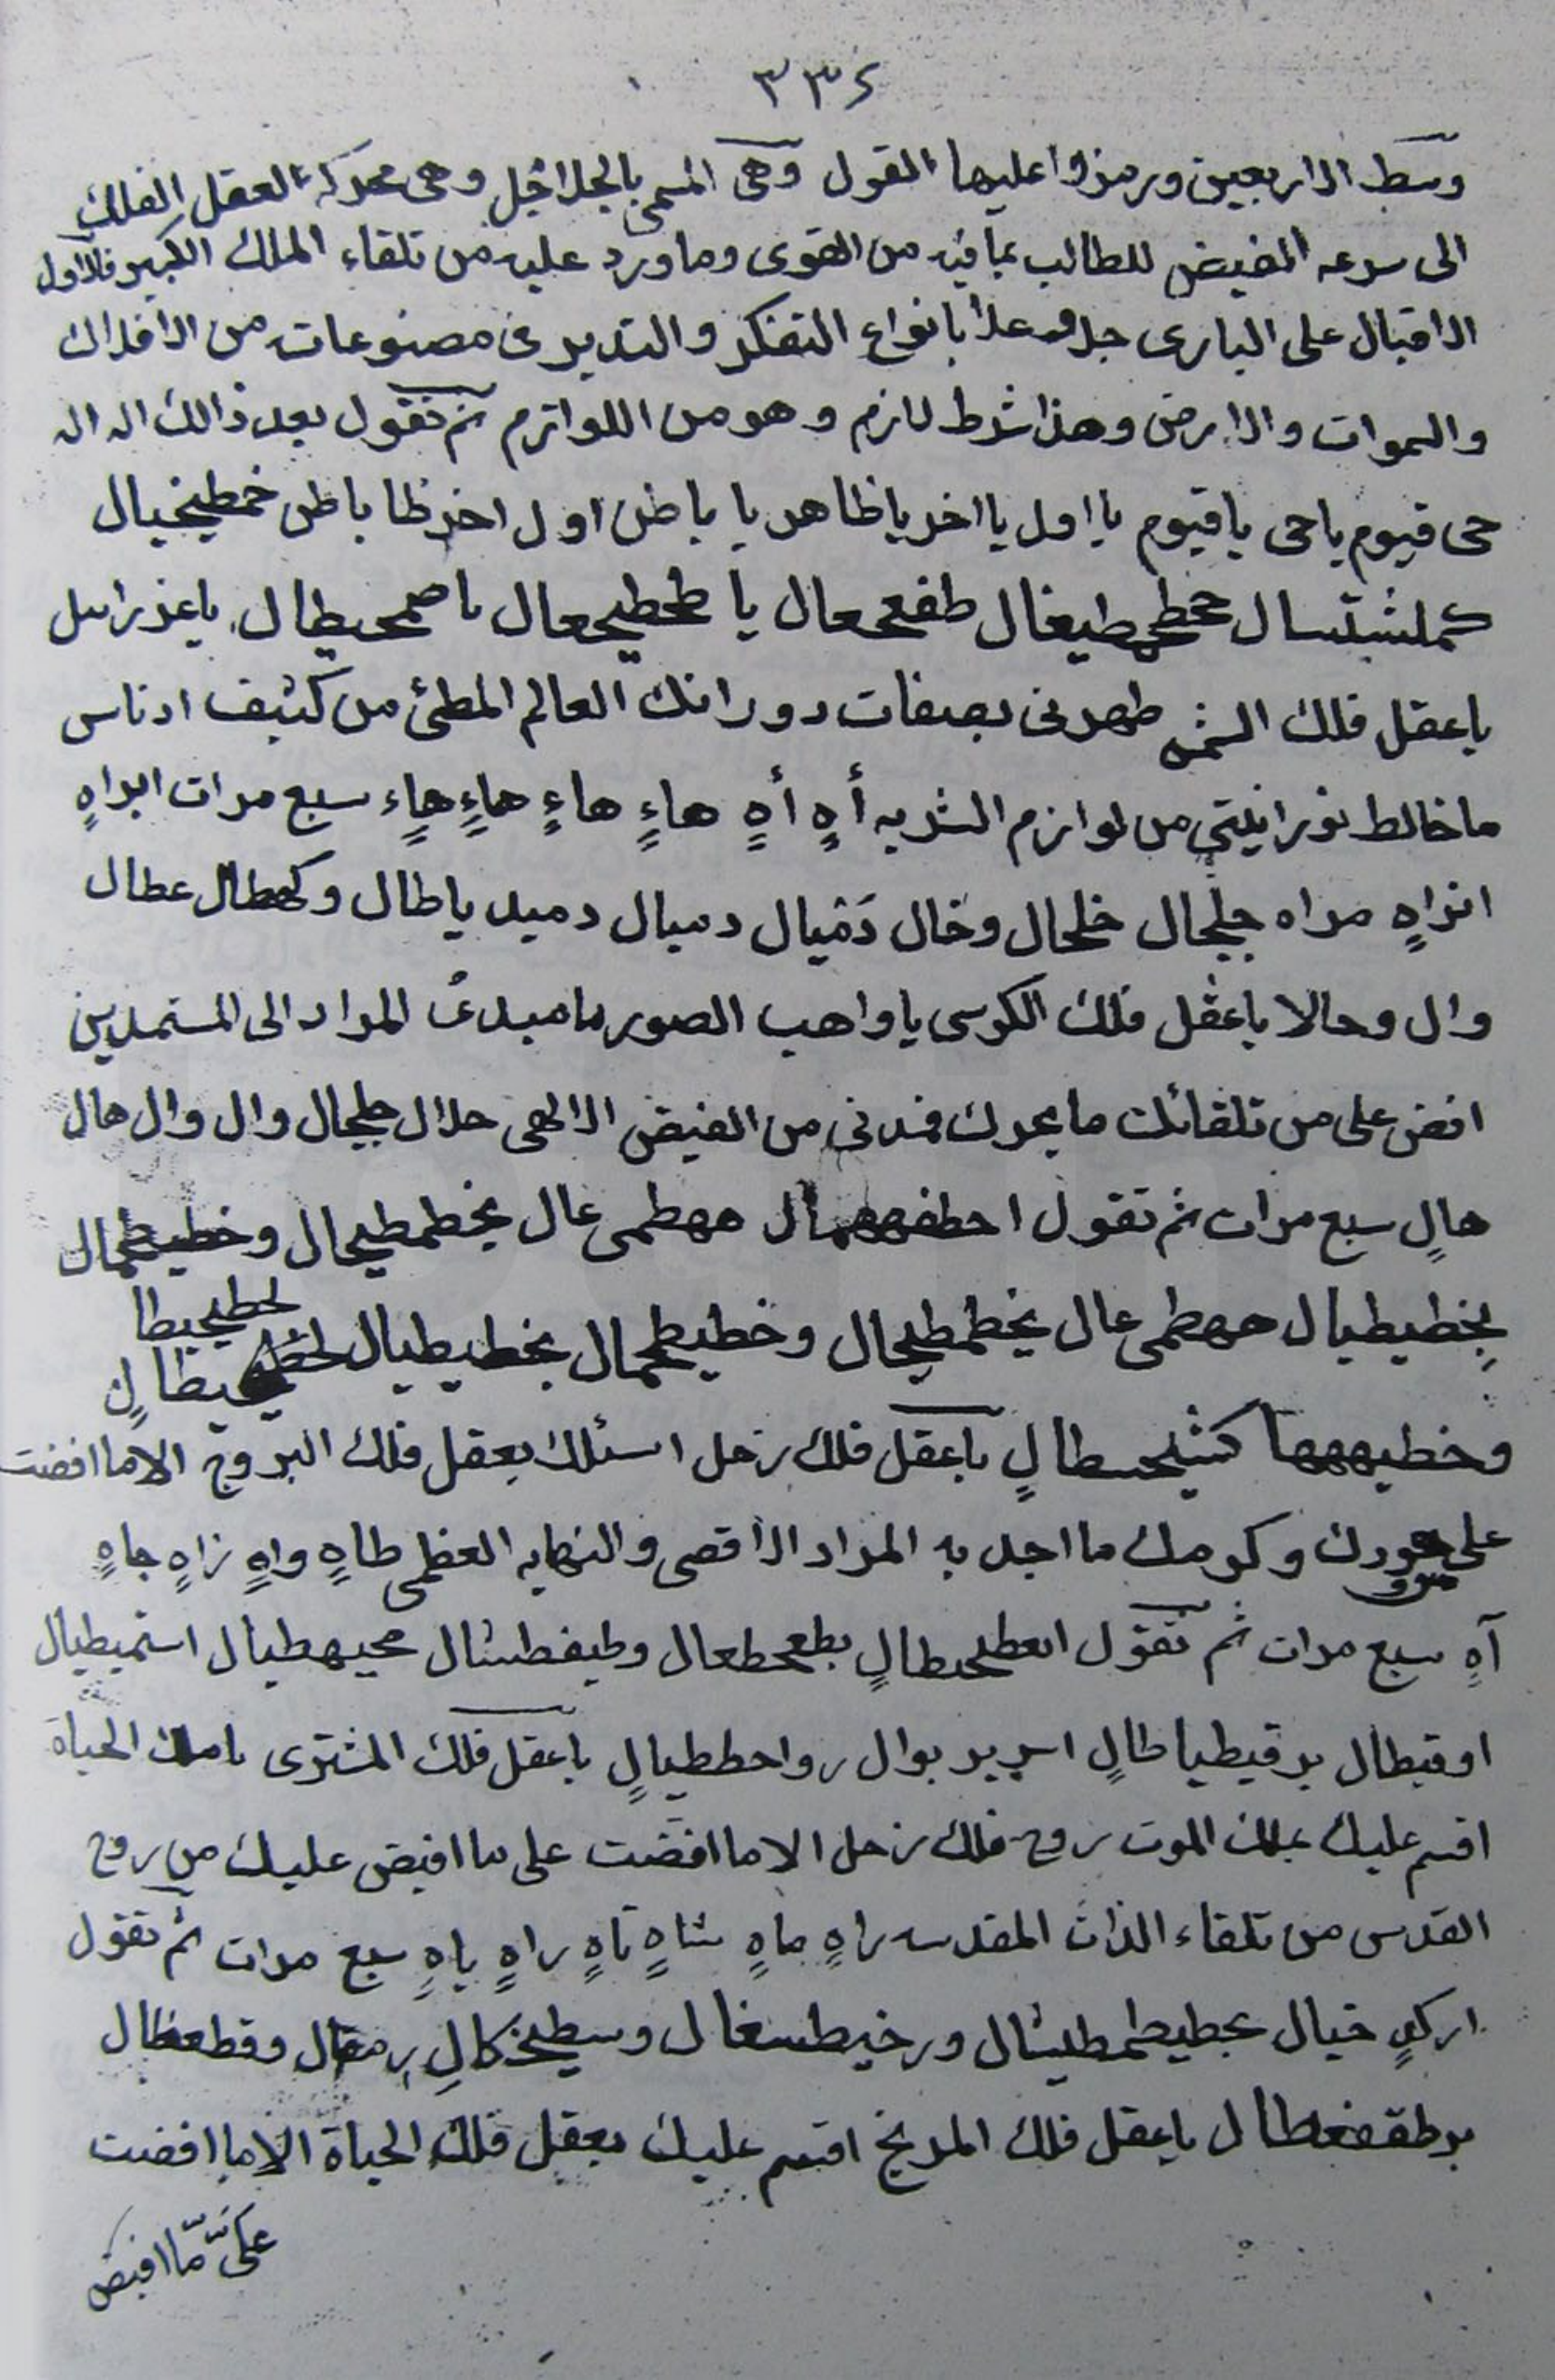 ٣٣٤
وسط الاربعين ورمزوا عليها القول وهى المسمى بالجلاجل وهى محركة العقل الفلك
الى سرعه الفيض للطالب بما فيه من القوى وما ورد عليه من تلقاء الملك الكبير فالاول
الاقبال على البارى جل وعلا بانواع التفكر والتدبر فى مصنوعات من الافلاك
والسموات والارض وهذا شرط لازم وهو من اللوازم ثم تقول بعد ذالك اله اله
حى قيوم ياحى ياقيوم يااول يااخر ياظاهر يا باطن اول اخر ظا باطن خمطيخيال
يا طحطيحعال يا صمحيطال ياعزرايل
ياعقل فلك الشمس طهرنى بصفات دورانك العالم المطئ من كثيف ادناس
ماخالط نورانيتى من لوازم البشريه أهٍ أهٍ هاءٍ هاءٍ هاءٍ هاءٍ سبع مرات ابراهٍ
انراهٍ مراه جلجال خلجال وخال دَمْيال دميال دميد ياطال وكهطال عطال
وال وحالا ياعقل فلك الكرسى يا واهب الصور يا مبدئ المراد الى المستمدين
افض على من تلقائك ما يحرك فمدنى من الفيض الالهى حلال جلجال وال وال هال
هالٍ سبع مرات ثم تقول ههطمى عال بخطمطيحال وخطيطحمال
بِخطيطيال ههطمى عال بخطمطيحال وخطيطحمال بخطيطيال لخطيحيطال
وخطيهههها ياعقل فلك زحل اسئلك بعقل فلك البروج الاما افضت
على من جودك وكرمك ما اجد به المراد الاقصى والنهايه العظمى طاهٍ واهٍ زاهٍ جاهٍ
آهِ سبع مرات ثم تقول بطعحطعال وطيفطشال محيهطيال استميطيال
اوقيطال برقيطياطالٍ ياعقل فلك المشترى ياملك الحياة
اقسم عليك بملك الموت روح فلك زحل الاما افضت على ما افيض عليك من روح
القدس من تلقاء الذات المقدسه راهٍ ماهٍ شاهٍ تاهٍ راهٍ ياهٍ سبع مرات ثم تقول
خيال وسطيخكالِ رمقال وقطعظال
ياعقل فلك المريخ اقسم عليك بعقل فلك الحياة الاما افضت
علىّ ما افيض